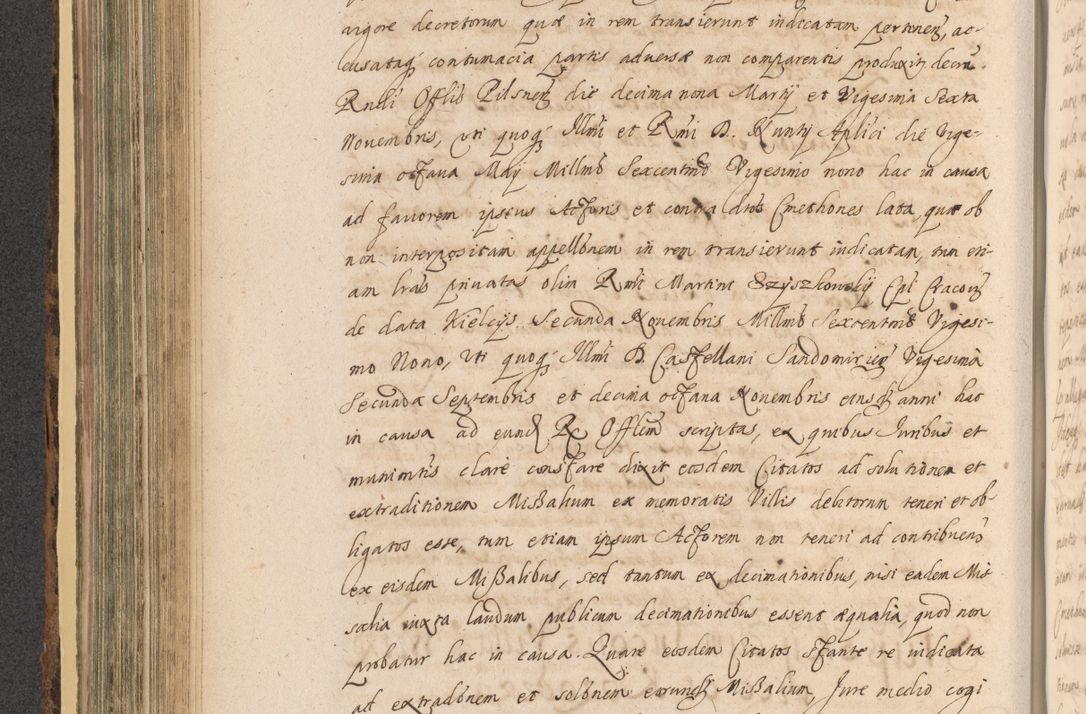 vigore decretorum quæ in rem transierunt indicatam pertinen, ac-
cusataq contumacia partis adversæ non comparentis produxit decra
Rndi Offlis Pilsnen die decima nona Martij et Vigesima Sexta
Novembris, vti quoq Illmi et Rmi D. Nuntij Aplici die Vige-
sima octava Maij Millmo Sexcentmo Vigesimo nono hac in causa
ad favorem ipsius Actoris et contra dtos Cmethones lata, quæ ob
non interpositam appellonem in rem transierunt iudicatam, tum eti-
am lras privatas olim Rmi Martini Szyszkowskij Epi Cracovien
de data Kielcijs Secunda Novembris Millmo Sexcentmo Vigesi-
mo Nono, vti quoq Illmi D. Castellani Sandomirien Vigesima
Secunda Septembris et decima octava Novembris eiusd anni hac
in causa ad eund R Offlem scriptas, ex quibus Iuribus et
munimtis clare constare dixit eosdem Citatos ad solutionem et
extraditionem Missalium ex memoratis Villis debitorum teneri et ob-
ligatos esse, tum etiam ipsum Actorem non teneri ad contribuend
ex eisdem Missalibus, sed tantum ex decimationibus, nisi eadem Mis
salia iuxta laudum publicum decimationibus essent æqualia, quod non
probatur hac in causa. Quare eosdem Citatos stante re iudicata
ad extradonem et solonem eorund Missalium, Iure medio cogi